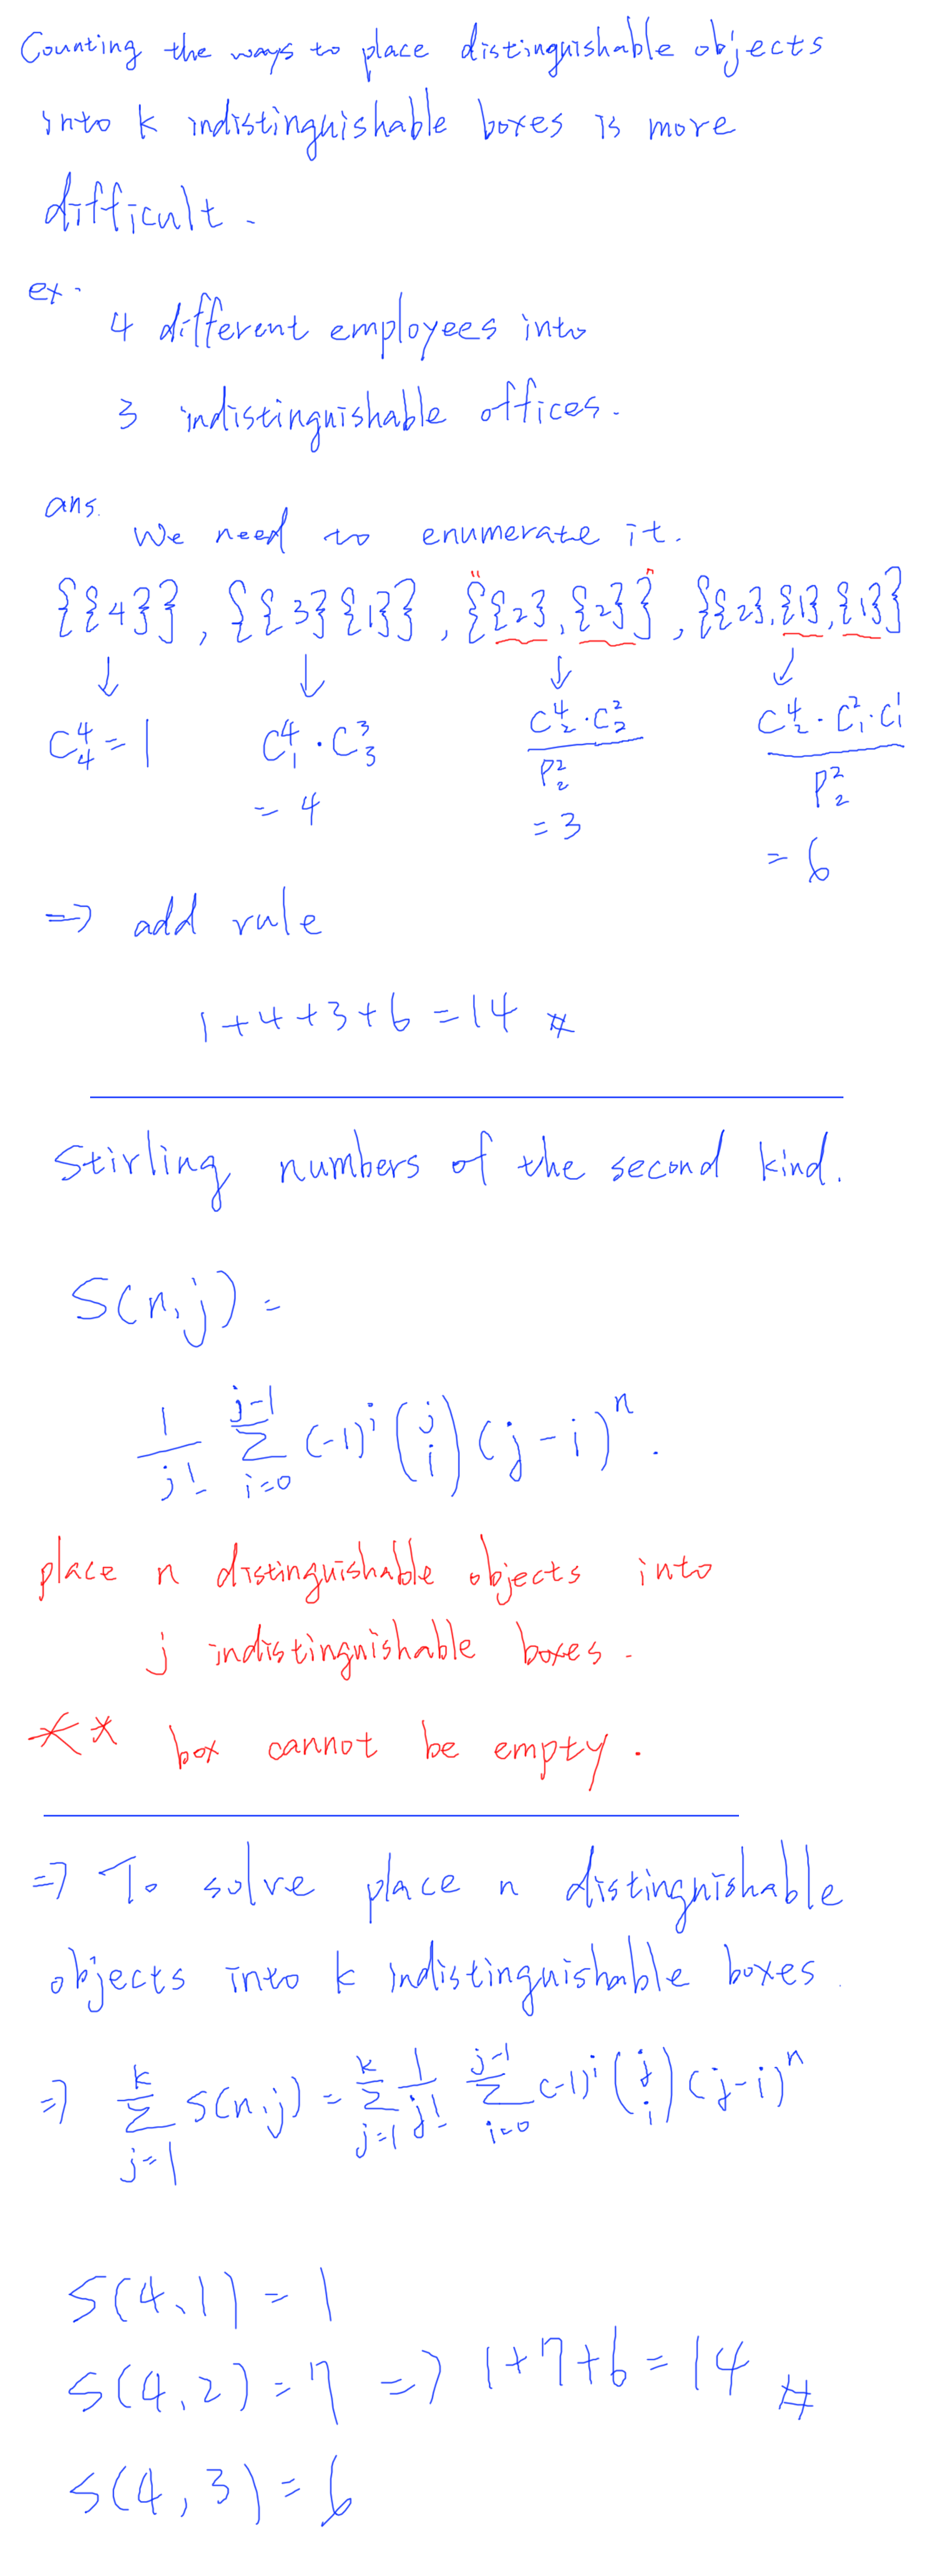 Counting the ways to place distinguishable objects
into k indistinguishable boxes is more
difficult.
ex.
4 different employees into
3 indistinguishable offices.
ans.
We need to enumerate it.
{{4}}, {{3}{1}}, "{{2},{2}}", {{2},{1},{1}}
↓ ↓ ↓ ↓
C⁴₄ = 1 C⁴₁ · C³₃ = 4 (C⁴₂ · C²₂)/P²₂ = 3 (C⁴₂ · C²₁ · C¹₁)/P²₂ = 6
=> add rule
1+4+3+6 = 14 #
Stirling numbers of the second kind.
S(n,j) =
1/j! Σ_{i=0}^{j-1} (-1)^i (j i) (j-i)^n.
place n distinguishable objects into
j indistinguishable boxes.
** box cannot be empty.
=> To solve place n distinguishable
objects into k indistinguishable boxes.
=> Σ_{j=1}^{k} S(n,j) = Σ_{j=1}^{k} 1/j! Σ_{i=0}^{j-1} (-1)^i (j i) (j-i)^n
S(4,1) = 1
S(4,2) = 7 => 1+7+6 = 14 #
S(4,3) = 6